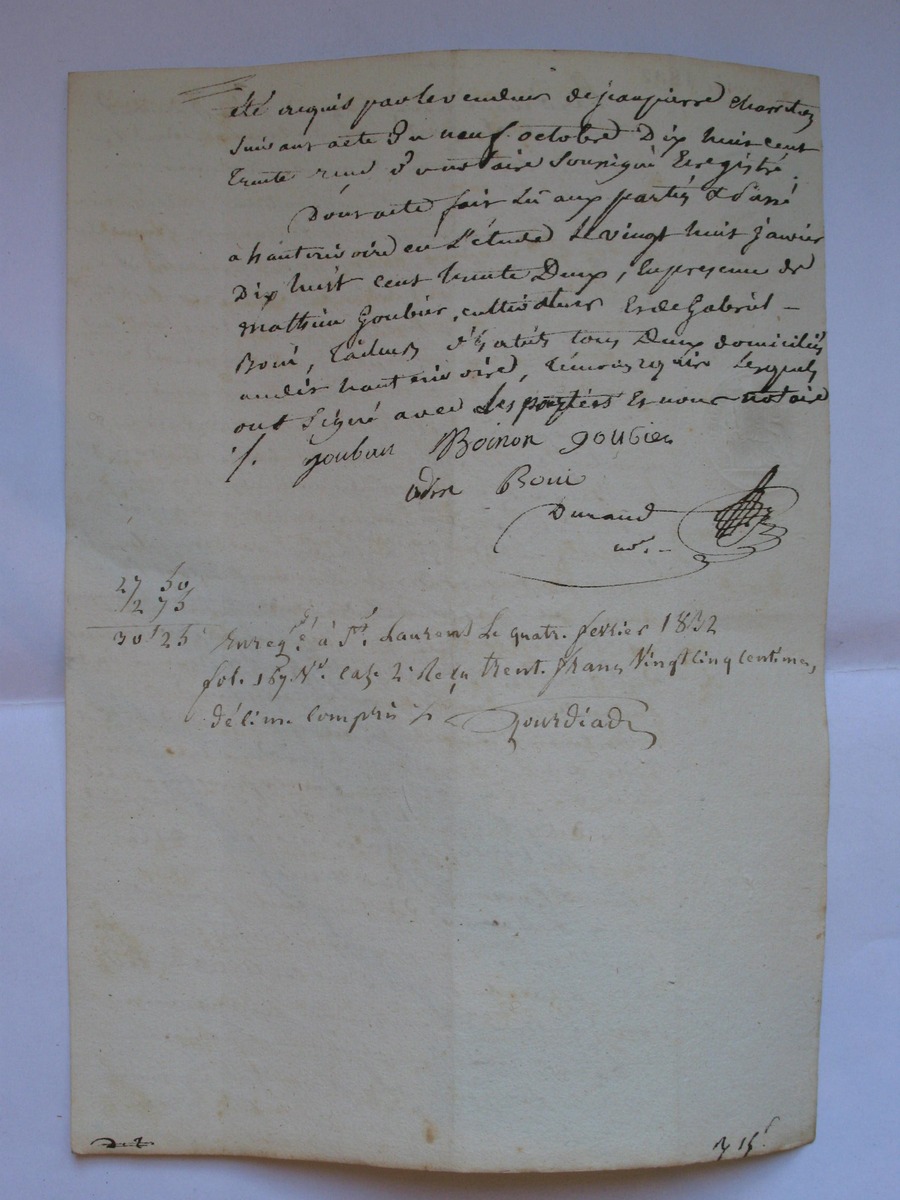 été acquis par le vendeur de jean pierre
suivant acte du neuf octobre Dix huit cent
trente reçu d notaire soussigné Enregistré
Dont acte fait Lû aux parties & passé
à hauterivoire en L'étude Le vingt huit janvier
Dix huit cent trente Deux, En presence de
mathieu Goubier, cultivateur Et de Gabriel
Boni, tailleur d'habits tous Deux domiciliés
audit hauterivoire, témoins requis Lesquels
ont signé avec Les parties Et nous notaire
/. Boinon goubier
Boni
Durand
nre.
27 50
2 75
30f 25c
Enregé. à St. Laurent Le quatr. fevrier 1832
fol. 167 No. case 2 Reçu trent. francs vingt cinq centimes,
décime compris /.